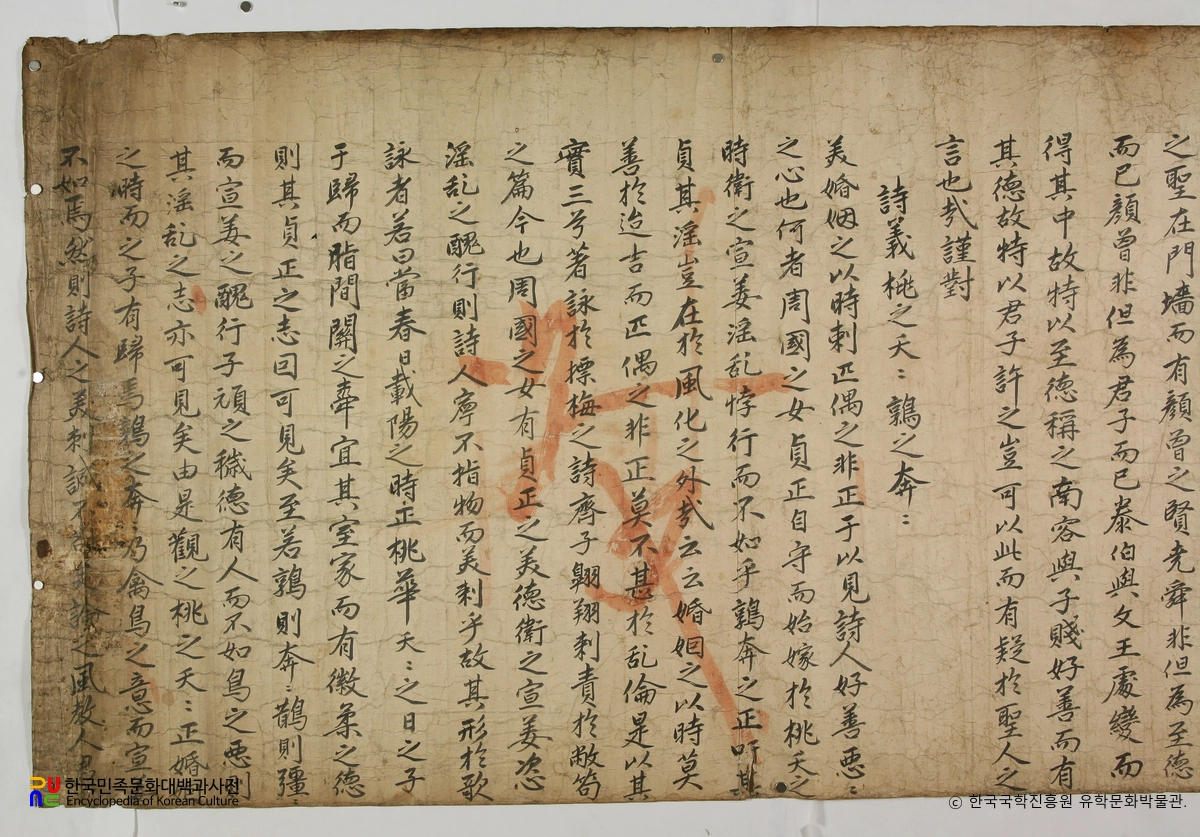 之聖在門墻而有顔曾之賢堯舜非但為至德
而已顔曾非但為君子而已泰伯與文王處變而
得其中故特以至德稱之南容與子賤好善而有
其德故特以君子許之豈可以此而有疑於聖人之
言也哉謹對
詩義桃之夭〻鶉之奔〻
美婚姻之以時刺匹偶之非正于以見詩人好善惡〻
之心也何者周國之女貞正自守而始嫁於桃夭之
時衛之宣姜淫乱悖行而不如乎鶉奔之正吁其
貞其淫豈在於風化之外哉云云婚姻之以時莫
善於迨吉而匹偶之非正莫不甚於乱倫是以其
實三兮著詠於摽梅之詩齊子翺翔刺責於敝笱
之篇今也周國之女有貞正之美德衛之宣姜恣
淫乱之醜行則詩人寧不指物而美刺乎故其形於歌
詠者若曰當春日載陽之時正桃華夭〻之日之子
于歸而脂間關之舝宜其室家而有徽柔之德
則其貞正之志回可見矣至若鶉則奔〻鵲則彊〻
而宣姜之醜行子頑之穢德有人而不如鳥之惡則
其淫乱之志亦可見矣由是觀之桃之夭〻正婚
之時而之子有歸焉鶉之奔〻乃禽鳥之意而宣
不如焉然則詩人之美刺誠不 之風教人
한국민족문화대백과사전
Encyclopedia of Korean Culture
© 한국국학진흥원 유학문화박물관.